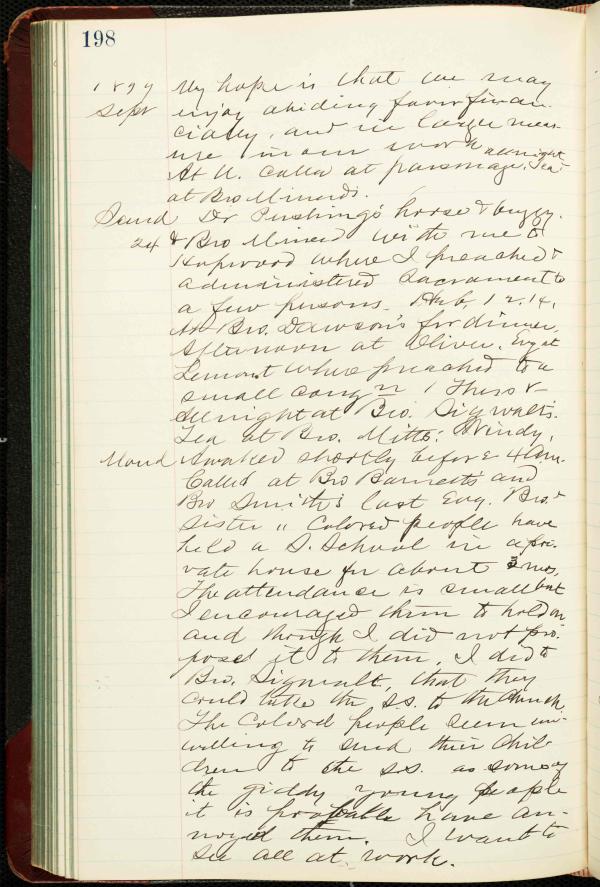 198
1899 My hope is that we may
Sept enjoy abiding favor finan-
cially, and in large meas-
ure in our work
At U. Called at parsonage. Tea all night
at Bro Minerd's.
Sund Dr Pushing's horse & buggy.
24 & Bro Minerd with me to
Hopwood where I preached &
administered Sacrament to
a few persons. Heb, 12.14.
At Bro. Dawson's for dinner.
Afternoon at Oliver. Evg at
Lemont where preached to a
small congn 1 Thess &
All night at Bro. Sigwalt's.
Tea at Bro. Mitts: Windy.
Mond Awaked shortly before 4 A.m.
Called at Bro Barnett's and
Bro Smith's last Evg. Bro. &
Sister " Colored people have
held a S. School in a pri-
vate house for about 3 mos,
The attendance is small but
I encouraged them to hold on
and though I did not pro-
posed it to them, I did to
Bro. Sigwalt, that they
could take the S.S. to the Church.
The Colored people seem un-
willing to send their chil
dren to the s.s. as some of
the giddy young people
it is probable have an-
noyed them. I want to
see all at work.